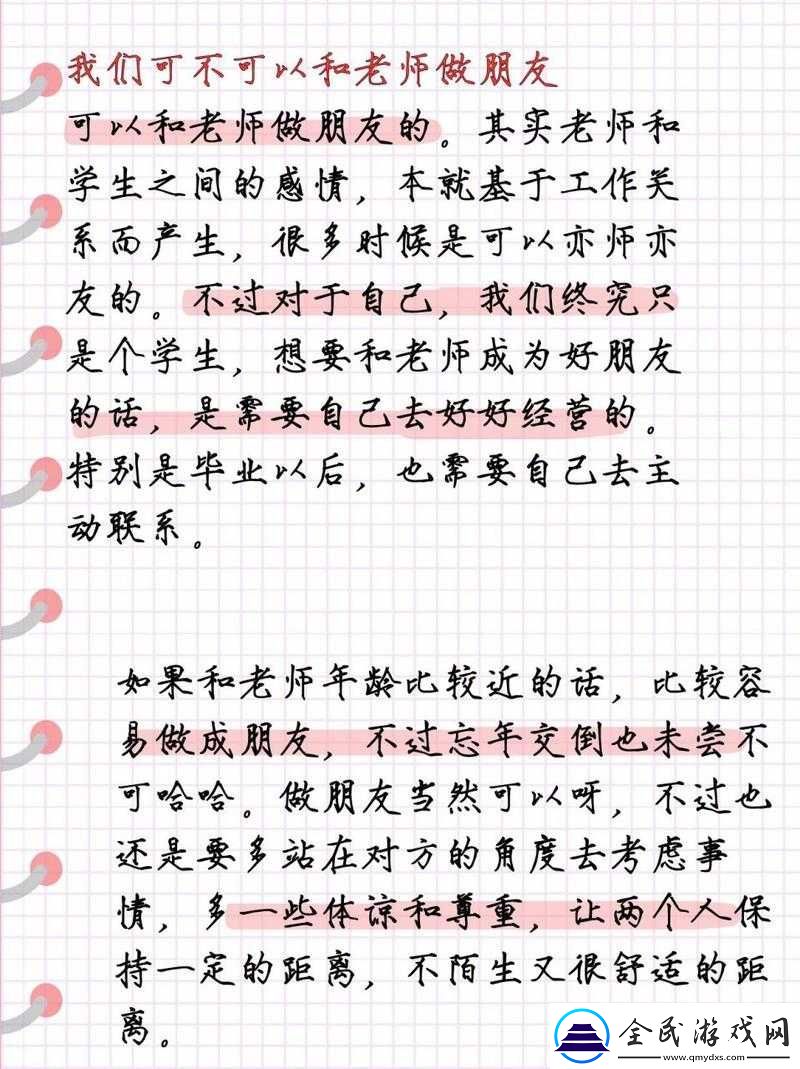 我们可不可以和老师做朋友
可以和老师做朋友的。其实老师和
学生之间的感情，本就基于工作关
系而产生，很多时候是可以亦师亦
友的。不过对于自己，我们终究只
是个学生，想要和老师成为好朋友
的话，是需要自己去好好经营的。
特别是毕业以后，也需要自己去主
动联系。
如果和老师年龄比较近的话，比较容
易做成朋友，不过忘年交倒也未尝不
可哈哈。做朋友当然可以呀，不过也
还是要多站在对方的角度去考虑事
情，多一些体谅和尊重，让两个人保
持一定的距离，不陌生又很舒适的距
离。
全民游戏网
www.qmydxs.com